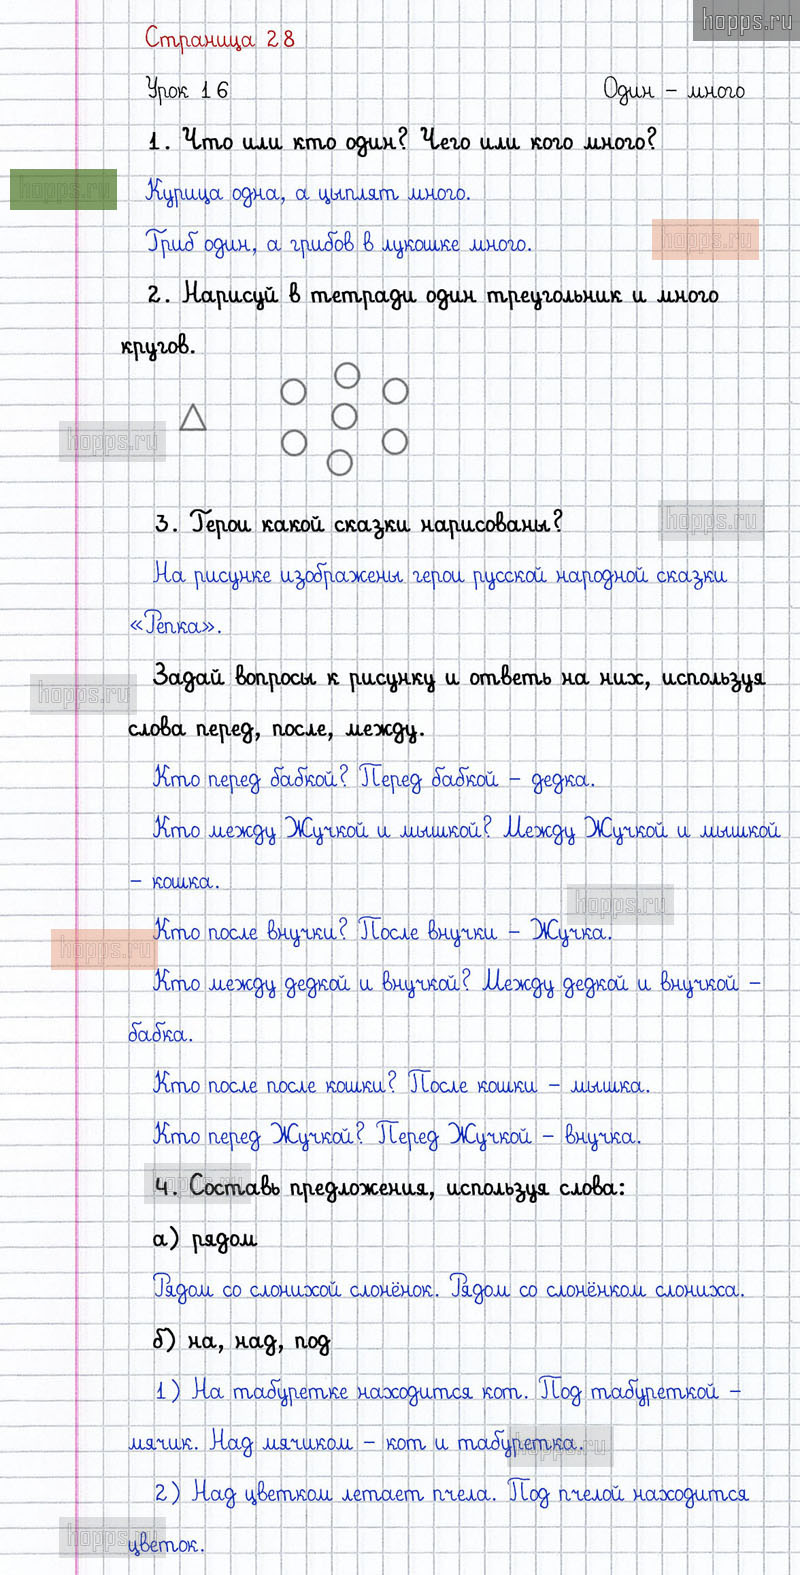 hopps.ru
Страница 28
Урок 16 Один – много
1. Что или кто один? Чего или кого много?
hopps.ru
Курица одна, а цыплят много.
Гриб один, а грибов в лукошке много.
hopps.ru
2. Нарисуй в тетради один треугольник и много
кругов.
hopps.ru
3. Герои какой сказки нарисованы?
hopps.ru
На рисунке изображены герои русской народной сказки
«Репка».
Задай вопросы к рисунку и ответь на них, используя
hopps.ru
слова перед, после, между.
Кто перед бабкой? Перед бабкой – дедка.
Кто между Жучкой и мышкой? Между Жучкой и мышкой
– кошка.
hopps.ru
Кто после внучки? После внучки – Жучка.
hopps.ru
Кто между дедкой и внучкой? Между дедкой и внучкой –
бабка.
Кто после после кошки? После кошки – мышка.
Кто перед Жучкой? Перед Жучкой – внучка.
hopps.ru
4. Составь предложения, используя слова:
а) рядом
Рядом со слонихой слонёнок. Рядом со слонёнком слониха.
б) на, над, под
1) На табуретке находится кот. Под табуреткой –
мячик. Над мячиком – кот и табуретка.
hopps.ru
2) Над цветком летает пчела. Под пчелой находится
hopps.ru
цветок.